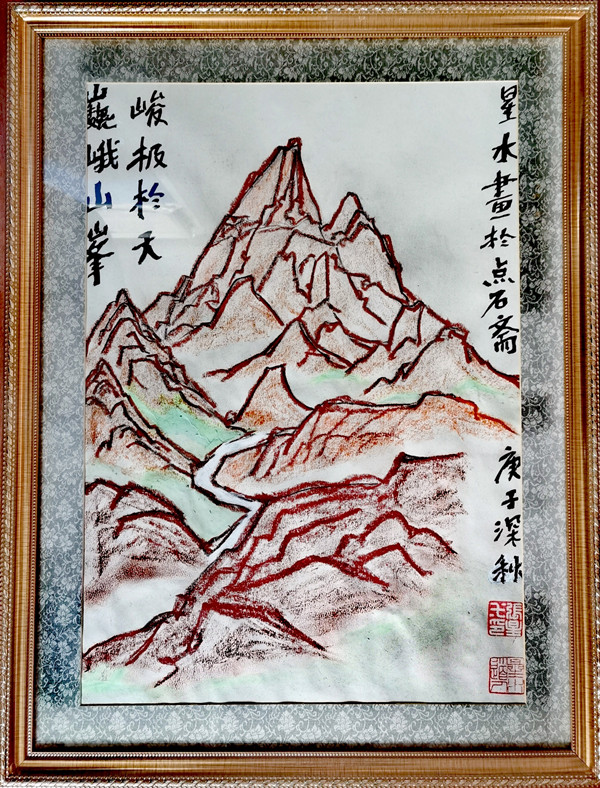 巍峨山峯
峻极於天
星水畫於点石斋
庚子深秋